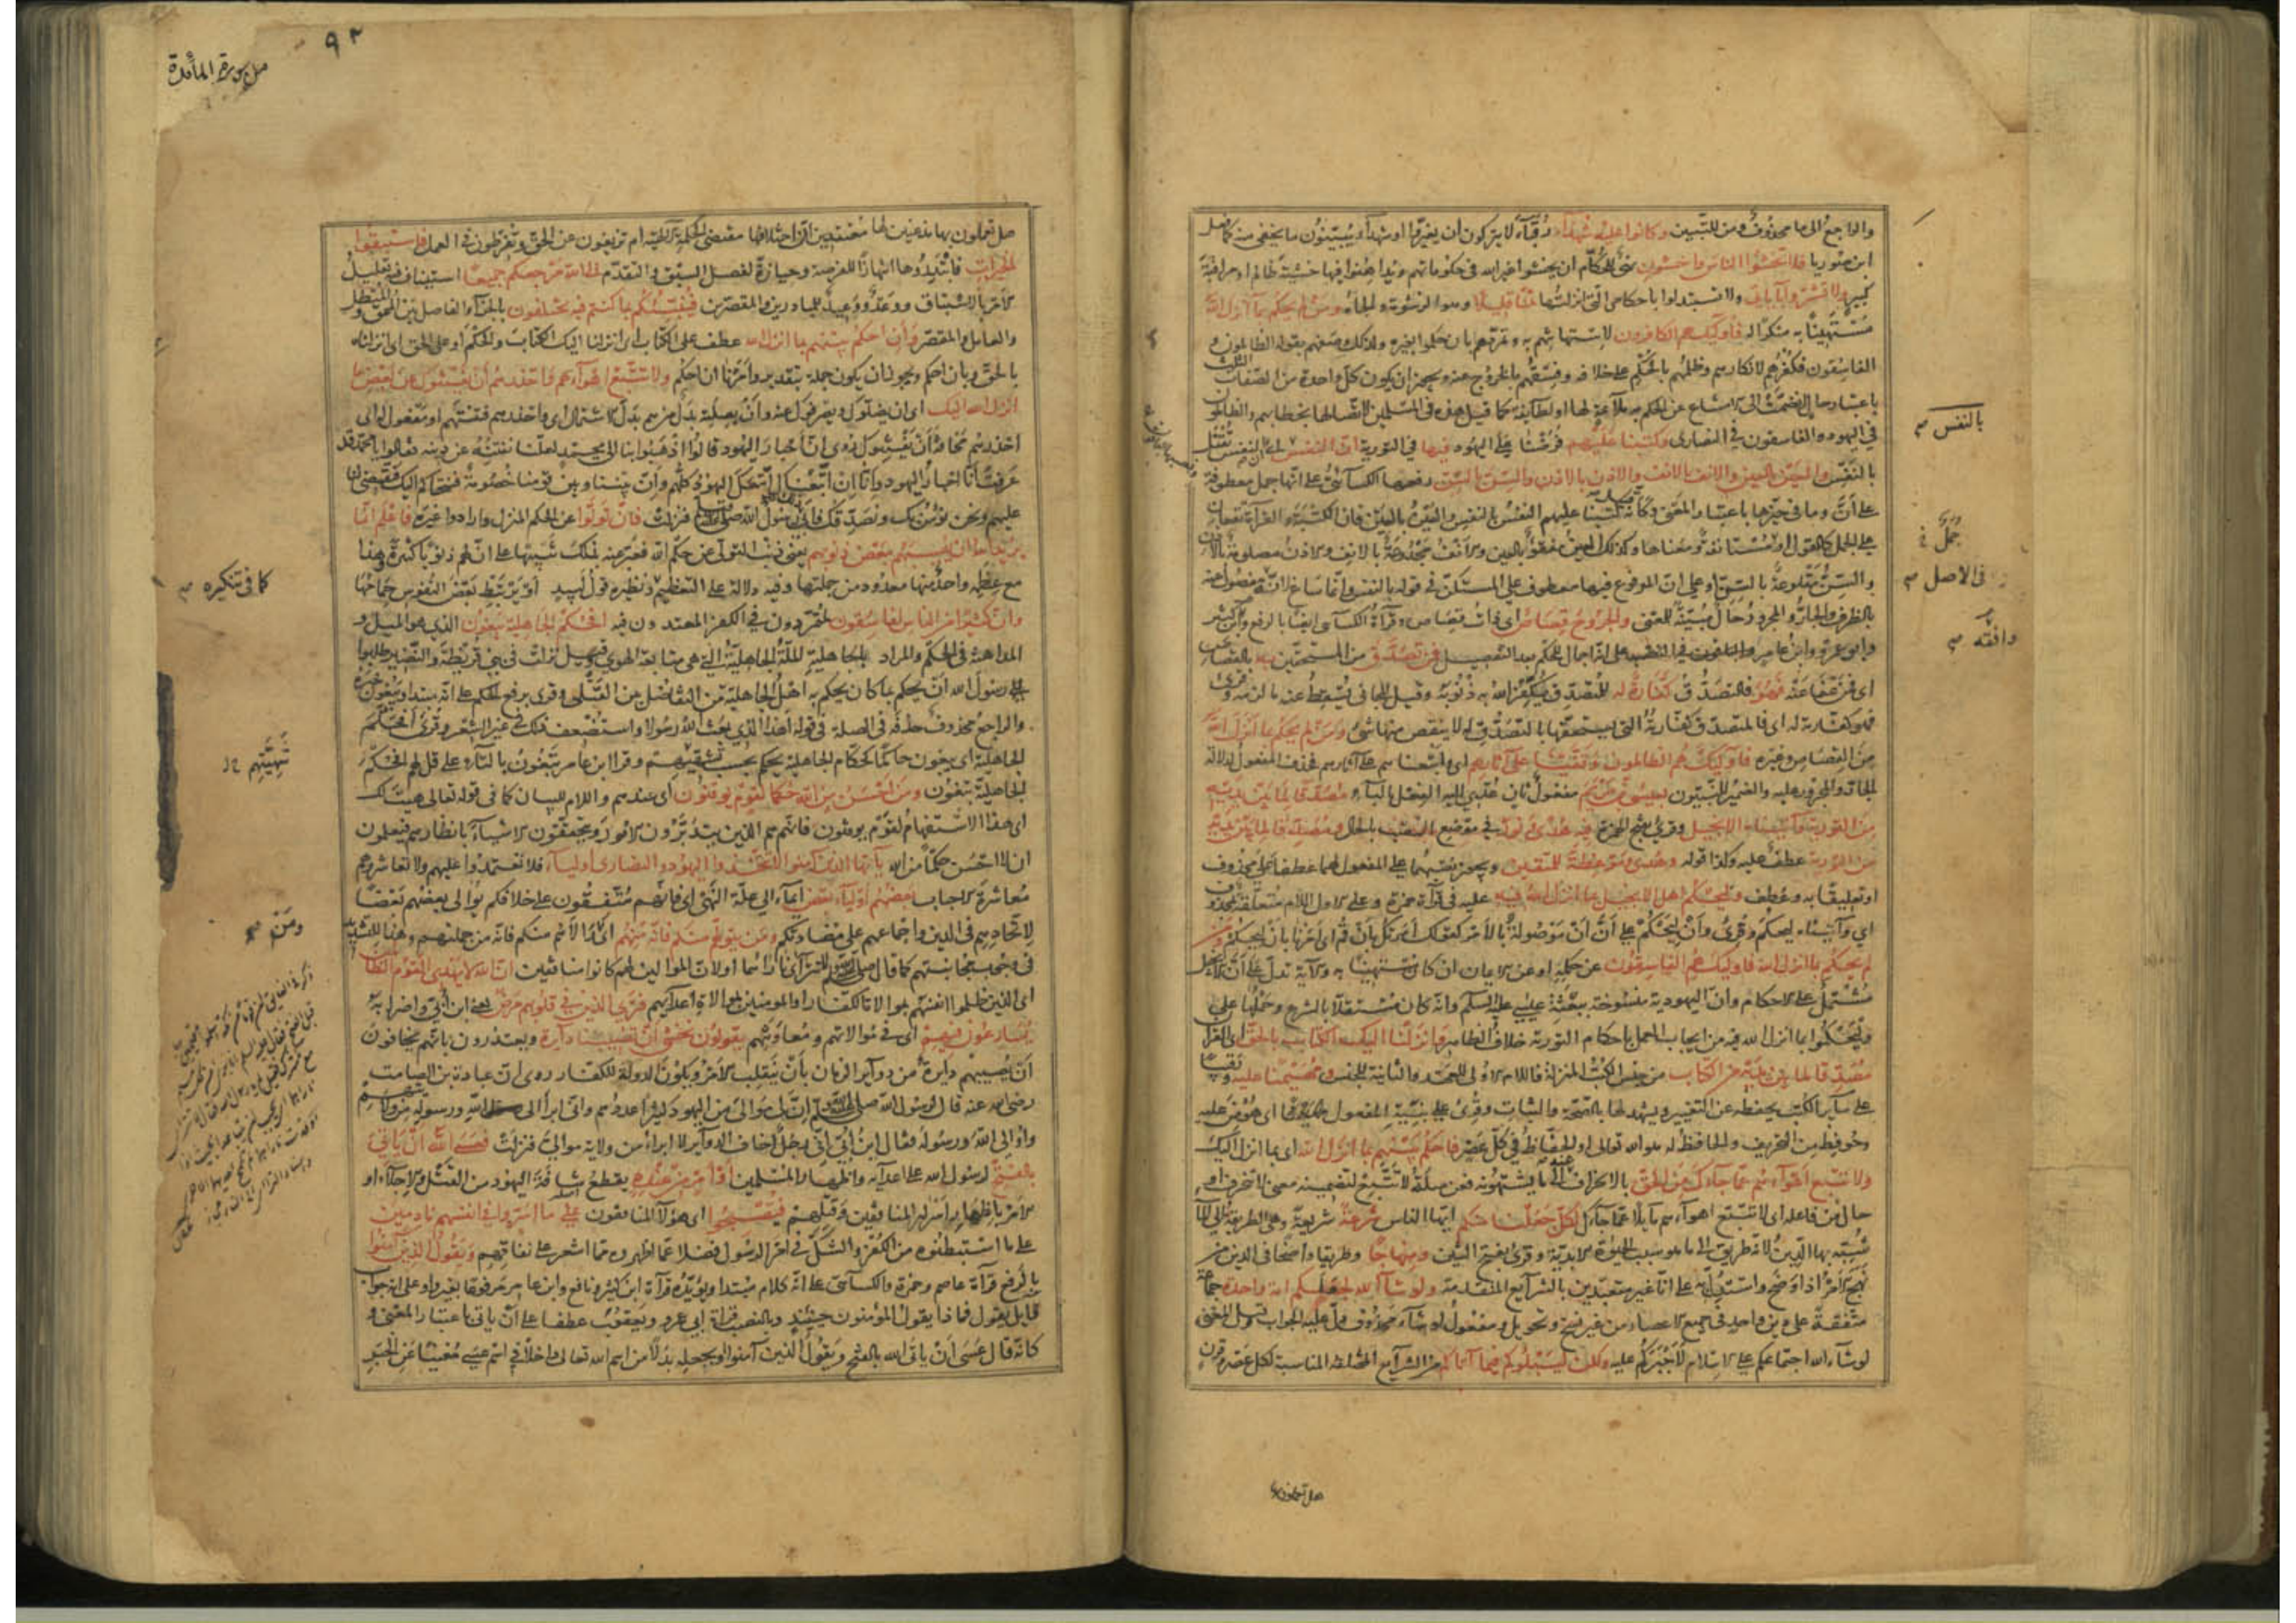 والراجع الى ما محذوف ومن للتبيين وكانوا عليه شهداء رقباء لا يتركون ان يغيروا او شهداء يبينون ما يخفى منه كما فعل
ابن صوريا فلا تخشوا الناس واخشون نهى للحكام ان يخشوا غير الله فى حكوماتهم ويداهنوا فيها خشية ظالم او مراقبة
كبير ولا تشتروا بآياتى ولا تستبدلوا باحكامى التى انزلتها ثمنا قليلا وهو الرشوة والجاه ومن لم يحكم بما انزل الله
مستهينا به منكرا له فاولئك هم الكافرون لاستهانتهم به وتمردهم بان حكموا بغيره ولذلك وصفهم بقوله الظالمون و
الفاسقون فكفرهم لانكاره وظلمهم بالحكم على خلافه وفسقهم بالخروج عنه ويجوز ان يكون كل واحدة من الصفات الثلث
باعتبار حال انضمت الى الامتناع عن الحكم به ملائمة لها او لطائفة كما قيل هذه فى المسلمين لاتصالها بخطابهم والظالمون
فى اليهود والفاسقون فى النصارى وكتبنا عليهم فرضنا على اليهود فيها فى التورية ان النفس بالنفس اى ان النفس تقتل
بالنفس والعين بالعين والانف بالانف والاذن بالاذن والسن بالسن رفعها الكسائى على انها جمل معطوفة
على ان وما فى حيزها باعتبار المعنى وكانه قيل كتبنا عليهم النفس بالنفس والعين بالعين فان الكتبة والقراءة تقعان
على الجمل كالقول او مستانفة ومعناها وكذلك العين مفقوءة بالعين والانف مجدوعة بالانف والاذن مصلومة بالاذن
والسن مقلوعة بالسن او على ان المرفوع فيها معطوف على المستكن فى قوله بالنفس وانما ساغ لانه مفصول عنه
بالظرف والجار والمجرور حال مبينة للمعنى والجروح قصاص اى ذات قصاص وقراءة الكسائى ايضا بالرفع وابن كثير
وابو عمرو وابن عامر على انه اجمال للحكم بعد التفصيل فمن تصدق من المستحقين به بالقصاص
اى فمن عفا عنه فهو فالتصدق كفارة له للمتصدق يكفر الله به ذنوبه وقيل للجانى يسقط عنه ما لزمه وقرئ
فهو كفارته له اى فالمتصدق كفارته التى يستحقها بالتصدق له لا ينقص منها شئ ومن لم يحكم بما انزل الله
من القصاص وغيره فاولئك هم الظالمون وقفينا على آثارهم اى واتبعناهم على آثارهم فحذف المفعول لدلالة
الجار والمجرور عليه والضمير للنبيون بعيسى بن مريم مفعول ثان عدى اليه الفعل بالباء مصدقا لما بين يديه
من التورية وآتيناه الانجيل وقرئ بفتح الهمزة فيه هدى ونور فى موضع النصب بالحال ومصدقا لما بين يديه
من التورية عطف عليه وكذا قوله وهدى وموعظة للمتقين ويجوز نصبهما على المفعول لهما عطفا على محذوف
او تعليقا به وعطف وليحكم اهل الانجيل بما انزل الله فيه عليه فى قراءة حمزة وعلى الاول اللام متعلقة بمحذوف
اى وآتيناه ليحكم وقرئ وان ليحكم على ان ان موصولة بالامر كقولك امرتك بان قم اى امرنا بان ليحكم ومن
لم يحكم بما انزل الله فاولئك هم الفاسقون عن حكمه او عن الايمان ان كان مستهينا به والآية تدل على ان الانجيل
مشتمل على الاحكام وان اليهودية منسوخة ببعثة عيسى عليه السلم وانه كان مستقلا بالشرع وحملها على
وليحكموا بما انزل الله فيه من ايجاب العمل باحكام التورية خلاف الظاهر وانزلنا اليك الكتاب بالحق اى القرآن
مصدقا لما بين يديه من الكتاب من جنس الكتب المنزلة فاللام الاولى للعهد والثانية للجنس ومهيمنا عليه ورقيبا
على سائر الكتب يحفظه عن التغيير ويشهد لها بالصحة والثبات وقرئ على بنية المفعول اى هومن عليه
وحوفظ من التحريف والحافظ له هو الله تعالى او الحفاظ فى كل عصر فاحكم بينهم بما انزل الله اى بما انزل اليك
ولا تتبع اهواءهم عما جاءك من الحق بالانحراف عنه الى ما يشتهونه فعن صلة لا تتبع لتضمينه معنى لا تنحرف او
حال من فاعله اى لا تتبع اهواءهم مائلا عما جاءك لكل جعلنا منكم ايها الناس شرعة شريعة وهى الطريقة الى الماء
شبه بها الدين لانه طريق الى ما هو سبب الحيوة الابدية وقرئ بفتح الشين ومنهاجا وطريقا واضحا فى الدين من
نهج الامر اذا وضح واستدل به على انا غير متعبدين بالشرايع المتقدمة ولو شاء الله لجعلكم امة واحدة جماعة
متفقة على دين واحد فى جميع الاعصار من غير نسخ وتحويل ومفعول لو شاء محذوف دل عليه الجواب وقيل المعنى
لو شاء الله اجتماعكم على الاسلام لاجبركم عليه ولكن ليبلوكم فيما آتاكم من الشرايع المختلفة المناسبة لكل عصر وقرن
بالنفس صح
فى الاصل صح
وافقه صح
هل تعملون بها
٩٢
من سورة المائدة
هل تعملون بها مذعنين لها معتقدين ان اختلافها مقتضى الحكمة الالهية ام تزيغون عن الحق وتفرطون فى العمل فاستبقوا
الخيرات فابتدروها انتهازا للفرصة وحيازة لفضل السبق والتقدم الى الله مرجعكم جميعا استيناف فيه تعليل
الامر بالاستباق ووعد ووعيد للمبادرين والمقصرين فينبئكم بما كنتم فيه تختلفون بالجزاء الفاصل بين المحق والمبطل
والعامل والمقصر وان احكم بينهم بما انزل الله عطف على الكتاب اى انزلنا اليك الكتاب والحكم او على الحق اى انزلناه
بالحق وبان احكم ويجوز ان يكون جملة بتقدير وامرنا ان احكم ولا تتبع اهواءهم واحذرهم ان يفتنوك عن بعض ما
انزل الله اليك اى ان يضلوك ويصرفوك عنه وان بصلته بدل من هم بدل الاشتمال اى واحذرهم فتنتهم او مفعول له اى
احذرهم مخافة ان يفتنوك روى ان احبار اليهود قالوا اذهبوا بنا الى محمد لعلنا نفتنه عن دينه فقالوا يا محمد قد
عرفت انا احبار اليهود وانا ان اتبعناك اتبعك اليهود كلهم وان بيننا وبين قومنا خصومة فنتحاكم اليك فتقضى لنا
عليهم ونحن نؤمن بك ونصدقك فابى رسول الله صلى الله عليه وسلم فنزلت فان تولوا عن الحكم المنزل وارادوا غيره فاعلم انما
يريد الله ان يصيبهم ببعض ذنوبهم يعنى ذنب التولى عن حكم الله فعبر عنه بذلك تنبيها على ان لهم ذنوبا كثيرة وهذا
مع عظمه واحد منها معدود من جملتها وفيه دلالة على التعظيم ونظيره قول لبيد او يرتبط بعض النفوس حمامها
وان كثيرا من الناس لفاسقون لمتمردون فى الكفر المعتدون فيه افحكم الجاهلية يبغون الذى هو الميل و
المداهنة فى الحكم والمراد بالجاهلية الملة الجاهلية التى هى متابعة الهوى وقيل نزلت فى بنى قريظة والنضير طلبوا
رسول الله ان يحكم بما كان يحكم به اهل الجاهلية من التفاضل بين القتلى وقرئ برفع الحكم على انه مبتدا ويبغون خبره
والراجع محذوف حذفه فى الصلة فى قوله اهذا الذى بعث الله رسولا واستضعف ذلك فى غير الشعر وقرئ افحكم
الجاهلية اى يبغون حاكما كحكام الجاهلية يحكم بحسب شهيتهم وقرا ابن عامر تبغون بالتاء على قل لهم افحكم
الجاهلية تبغون ومن احسن من الله حكما لقوم يوقنون اى عندهم واللام للبيان كما فى قوله تعالى هيت لك
اى هذا الاستفهام لقوم يوقنون فانهم هم الذين يتدبرون الامور ويتحققون الاشياء بانظارهم فيعلمون
ان لا احسن حكما من الله يا ايها الذين آمنوا لا تتخذوا اليهود والنصارى اولياء فلا تعتمدوا عليهم ولا تعاشروهم
معاشرة الاحباب بعضهم اولياء بعض ايماء الى علة النهى اى فانهم متفقون على خلافكم يوالى بعضهم بعضا
لاتحادهم فى الدين واجماعهم على مضادتكم ومن يتولهم منكم فانه منهم اى والاهم منكم فانه من جملتهم وهذا للتشديد
فى وجوب مجانبتهم كما قال صلى الله عليه وسلم لا تتراءى ناراهما او لان الموالين لهم كانوا منافقين ان الله لا يهدى القوم الظالمين
اى الذين ظلموا انفسهم بموالاة الكفار او المومنين بموالاة اعدائهم فترى الذين فى قلوبهم مرض يعنى ابن ابى واضرابه
يسارعون فيهم اى فى موالاتهم ومعاونتهم يقولون نخشى ان تصيبنا دايرة ويعتذرون بانهم يخافون
ان تصيبهم دايرة من دوائر الزمان بان ينقلب الامر ويكون الدولة للكفار روى ان عبادة بن الصامت
رضى الله عنه قال لرسول الله صلى الله عليه وسلم ان لى موالى من اليهود كثيرا عددهم وانى ابرأ الى الله ورسوله من ولايتهم
واوالى الله ورسوله فقال ابن ابى انى رجل اخاف الدوائر لا ابرا من ولاية موالى فنزلت فعسى الله ان ياتى
بالفتح لرسول الله على اعدائه واظهار المسلمين او امر من عنده يقطع شافة اليهود من القتل والاجلاء او
الامر باظهار اسرار المنافقين وقتلهم فيصبحوا اى هؤلاء المنافقون على ما اسروا فى انفسهم نادمين
على ما استبطنوه من الكفر والشك فى امر الرسول فضلا عما اظهروه مما اشعر على نفاقهم ويقول الذين آمنوا
بالرفع قراءة عاصم وحمزة والكسائى على انه كلام مبتدا ويؤيده قراءة ابن كثير ونافع وابن عامر مرفوعا بغير واو على انه جواب
قائل يقول فماذا يقول المؤمنون حينئذ وبالنصب قراءة ابى عمرو ويعقوب عطفا على ان ياتى باعتبار المعنى و
كانه قال عسى ان ياتى الله بالفتح ويقول الذين آمنوا او بجعله بدلا من اسم الله تعالى داخلا فى اسم عسى مغنيا عن الخبر
كما فى تنكيره صح
ومن صح